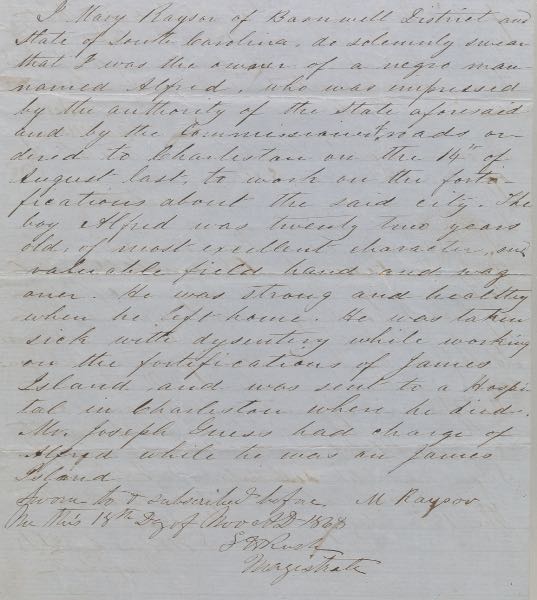 I Mary Raysor of Barnwell District and
State of South Carolina, do solemnly swear
that I was the owner of a negro man
named Alfred, who was impressed
by the authority of the State aforesaid
and by the Commissioners of roads or-
dered to Charleston on the 14th of
August last, to work on the forti-
fications about the said city. The
boy Alfred was twenty two years
old, of most excellent character, and
valuable field hand and wag
oner. He was strong and healthy
when he left home. He was taken
sick with dysentery while working
on the fortifications of James
Island and was sent to a Hospi
tal in Charleston where he died.
Mr. Joseph Guess had charge of
Alfred while he was on James
Island
Sworn to & subscribed before M Raysor
Me this 18th Day of Nov A.D. 1863
Rush
Magistrate